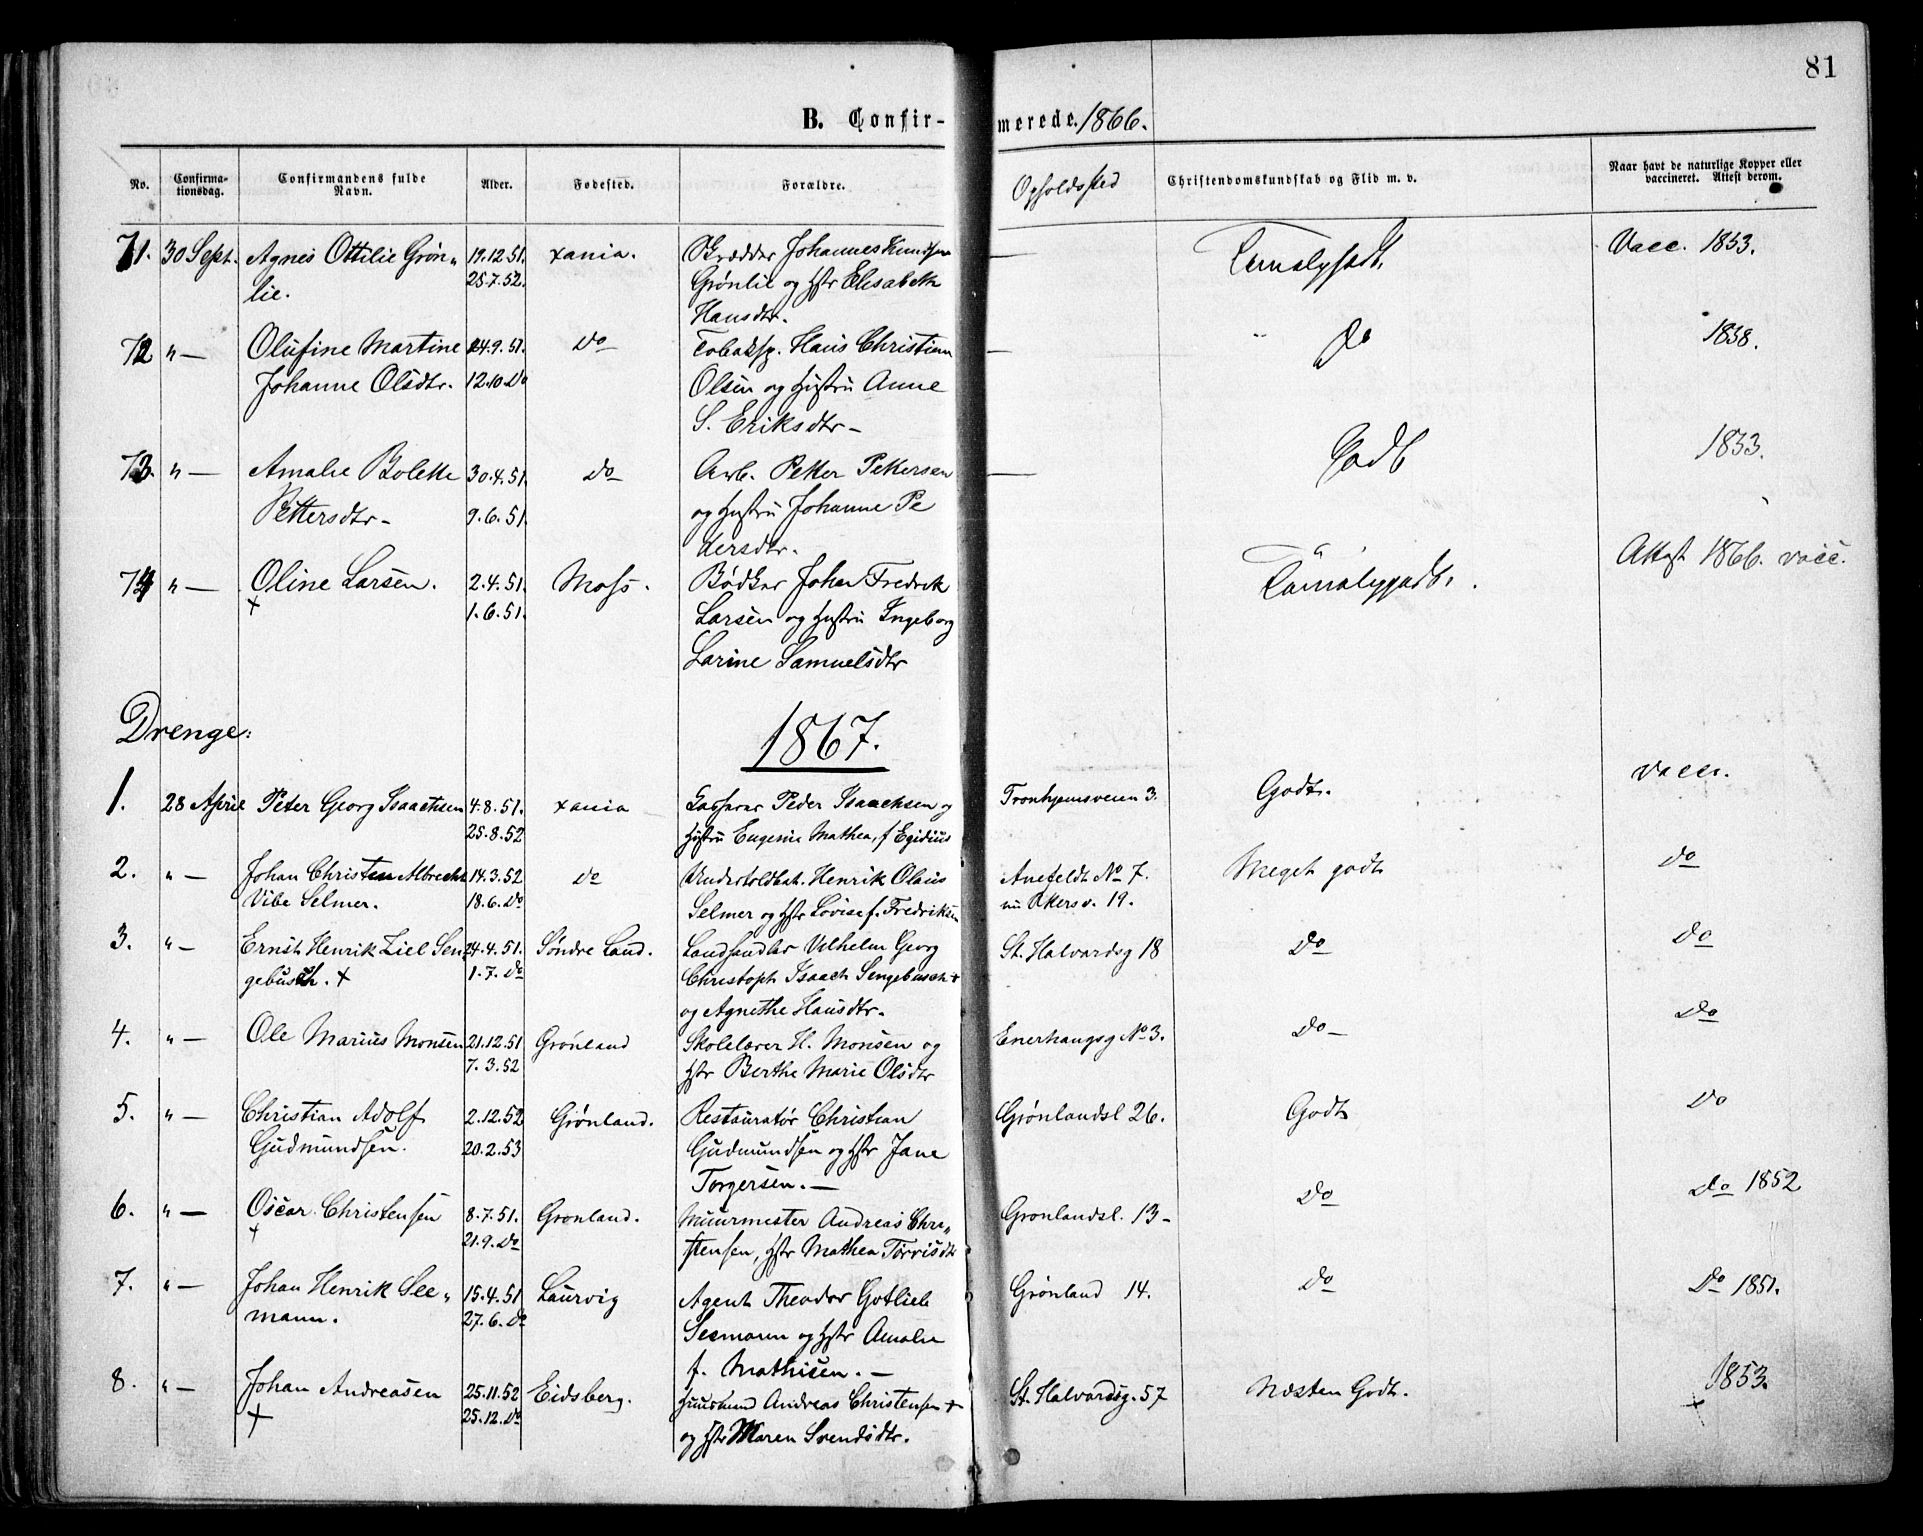 81
B. Confir- merede. 1866.
No. Confirma-tionsdag. Confirmandens fulde Navn. Alder. Fødested. Forældre. Opholdssted Christendomskundskab og Flid m. v. Naar havt de naturlige Kopper eller vaccineret. Attest derom.
71. 30 Sept. Agnes Ottilie Grøn- 19.12.51. xania. Johannes Knudsen — Temelig godt. Vacc. 1853.
lie. 25.7.52. Grønlie og Hstr Elisabeth
Hansdtr.
72 " — Olufine Martine 24.9.51. Do Tobaksp. Hans Christian — Do 1858.
Johanne Olsdtr. 12.10 Do Olsen og Hustru Anne
S. Eriksdtr —
73. " — Amalie Bolette 30.4.51. Do Arb. Petter Pettersen — Godt 1853.
Pettersdtr — 9.6.51. og Hustru Johanne Pe
dersdtr.
74 " — Oline Larsen. 2.4.51. Moss. Bødker Johan Fredrik Temelig godt. Attest 1866. vacc.
+ 1.6.51. Larsen og Hustru Ingeborg
Larine Samuelsdtr
Drenge: 1867.
1. 28 April Peter Georg Isaachsen 4.8.51. xania Peder Isaachsen og Tronhjemsveien 3. Godt. vacc.
25.8.52 Hustru Eugenie Mathea, f Egidius
2. " — Johan Christen Albrecht 14.3.52 Do Undertoldbet. Henrik Olaus Anefeldt No 7. Meget godt Do
Vibe Selmer. 18.6. Do Selmer og Hstr Lovise f. Fredriksen nu Akersv. 19.
3. " — Ernst Henrik Ziel Sen- 24.4.51. Søndre Land. Landhandler Vilhelm Georg St. Halvardsg 18 Do Do
gebusch. + 1.7. Do Christoph Isaach Sengebusch +
og Agnethe Hansdtr.
4. " — Ole Marius Monsen 21.12.51 Grønland Skolelærer H. Monsen og Enerhaugsg No 3. Do — Do
7.3.52 Hstr Berthe Marie Olsdtr
5. " — Christian Adolf 2.12.52 Grønland. Restauratør Christian Grønlandsl 26. Godt Do
Gudmundsen. 20.2.53 Gudmundsen og Hstr Jane
Torgersen. —
6. " — Oscar Christensen 8.7.51. Grønland. Muurmester Andreas Chri- Grønlandsl. 13 — Do Do 1852
+ 21.9. Do stensen, Hstr Mathea Torrisdtr
7. " — Johan Henrik See- 15.4.51 Laurvig Agent Theodor Gotlieb Grønland 14. Do Do 1851.
mann. 27.6. Do Seemann og Hstr Amalie
f. Mathisen. —
8. " — Johan Andreasen 25.11.52 Eidsberg. Huusmand Andreas Christensen + St. Halvardsg. 57 Næsten Godt. 1853.
+ 25.12. Do og Hstr Maren Svendsdtr. +